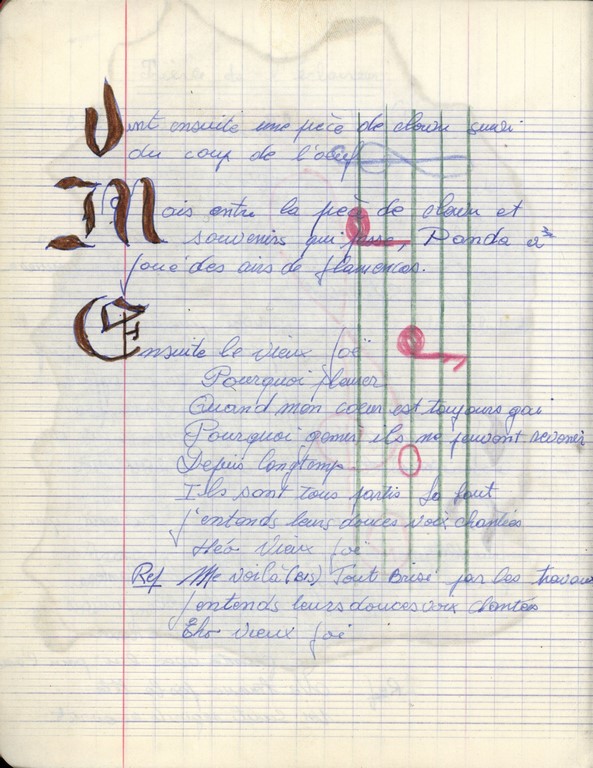 Vint ensuite une pièce de clown suivi
du coup de l'oeuf
Mais entre la pièce de clown et
souvenirs qui passe, Panda a
joué des airs de flamencos.
Ensuite le vieux Joë
Pourquoi pleurer
Quand mon coeur est toujours gai
Pourquoi gemir ils ne peuvent revenir
Depuis longtemps.
Ils sont tous partis La haut
J'entends leurs douces voix chantées
Héo Vieux Joë
Ref Me voilà (bis) Tout Brisé par les travaux
J'entends leurs douces voix chantées
Eho vieux Joë